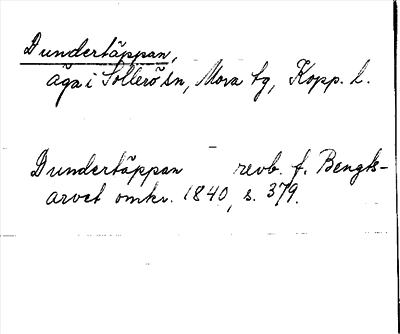 Dundertäppan,
äga i Sollerö sn, Mora tg, Kopp. l.
Dundertäppan revb. f. Bengts-
arvet omkr. 1840, s. 379.